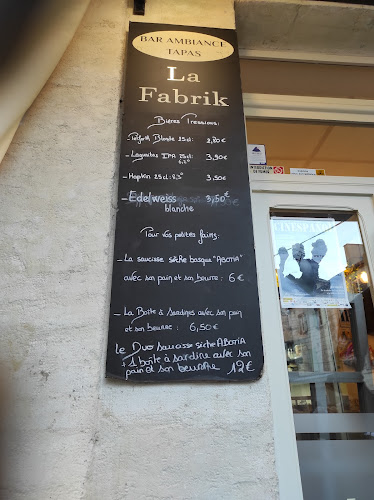 BAR AMBIANCE
TAPAS
La
Fabrik
Bières Pressions:
Blonde 25cl: 2,80€
- Lagunitas IPA 25cl: 3,50€
6,2°
- Hopkin 25cl: 8,3° 3,50€
- Edelweiss 3,50€
blanche
Pour vos petites faims:
- La saucisse sèche basque "ABOTIA"
avec son pain et son beurre: 6€
- La Boîte à Sardines avec son pain
et son beurre: 6,50€
le Duo saucisse sèche ABOTIA
1 boîte à sardine avec son
pain et son beurre 12€